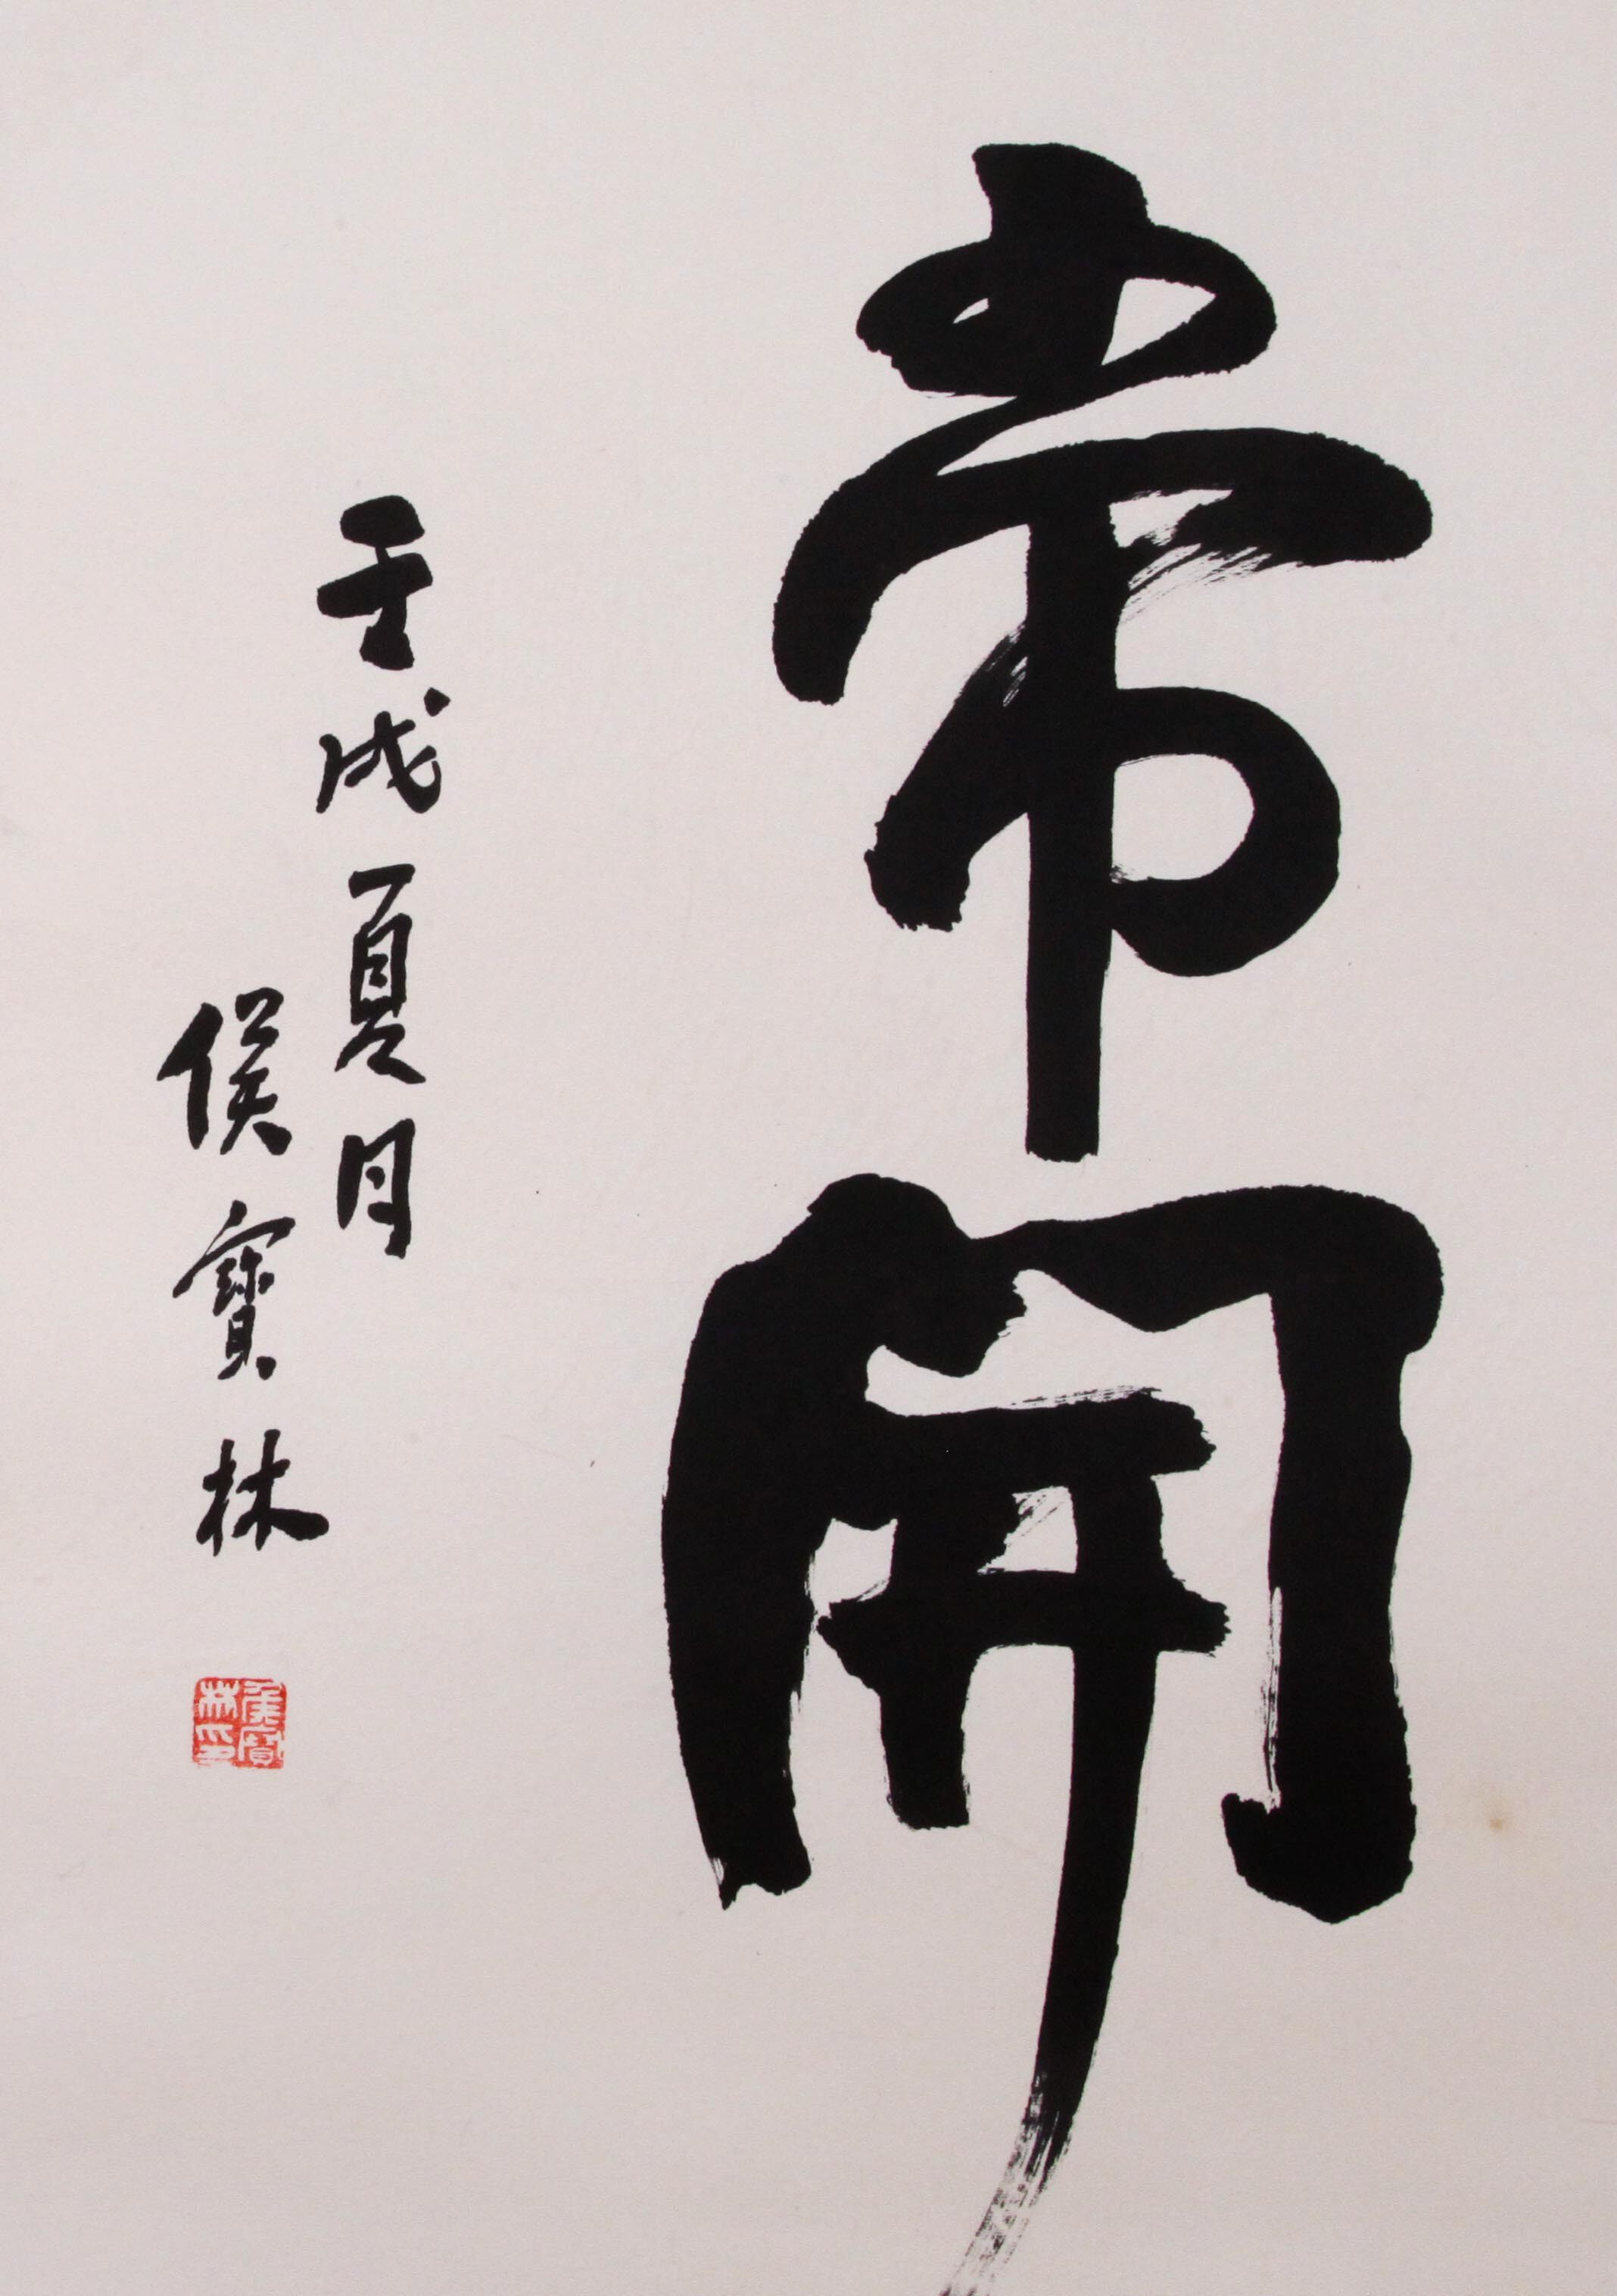 常開
壬戌夏月
侯寶林
侯寶林印